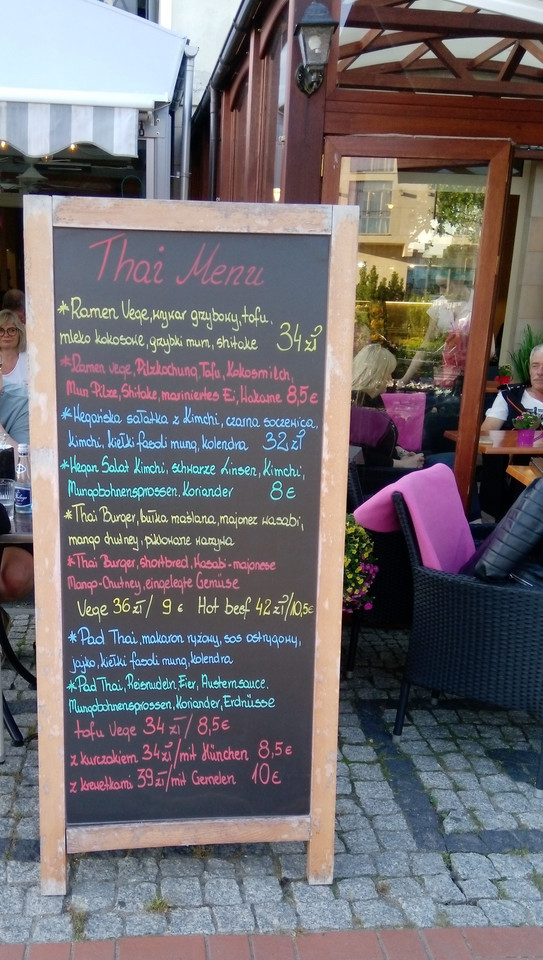 Thai Menu
*Ramen Vege, wywar grzybowy, tofu,
mleko kokosowe, grzybki mum, shitake 34 zł
*Ramen vege, Pilzkochung, Tofu, Kokosmilch,
Mun Pilze, Shitake, mariniertes Ei, Wakame 8,5 €
*Wegańska sałatka z Kimchi, czarna soczewica,
kimchi, kiełki fasoli mung, kolendra 32 zł
*Vegan Salat Kimchi, schwarze Linsen, Kimchi,
Mungobohnensprossen, Koriander 8 €
*Thai Burger, bułka maślana, majonez wasabi,
mango chutney, piklowane warzywa
*Thai Burger, shortbred, Wasabi-majonese
Mango-Chutney, eingelegte Gemüse
Vege 36 zł / 9 € Hot beef 42 zł/10,5€
*Pad Thai, makaron ryżowy, sos ostrygowy,
jajko, kiełki fasoli mung, kolendra
*Pad Thai, Reisnudeln, Eier, Austernsauce,
Mungobohnensprossen, Koriander, Erdnüsse
tofu Vege 34 zł / 8,5€
z kurczakiem 34 zł/mit Hünchen 8,5 €
z krewetkami 39 zł/mit Gernelen 10 €